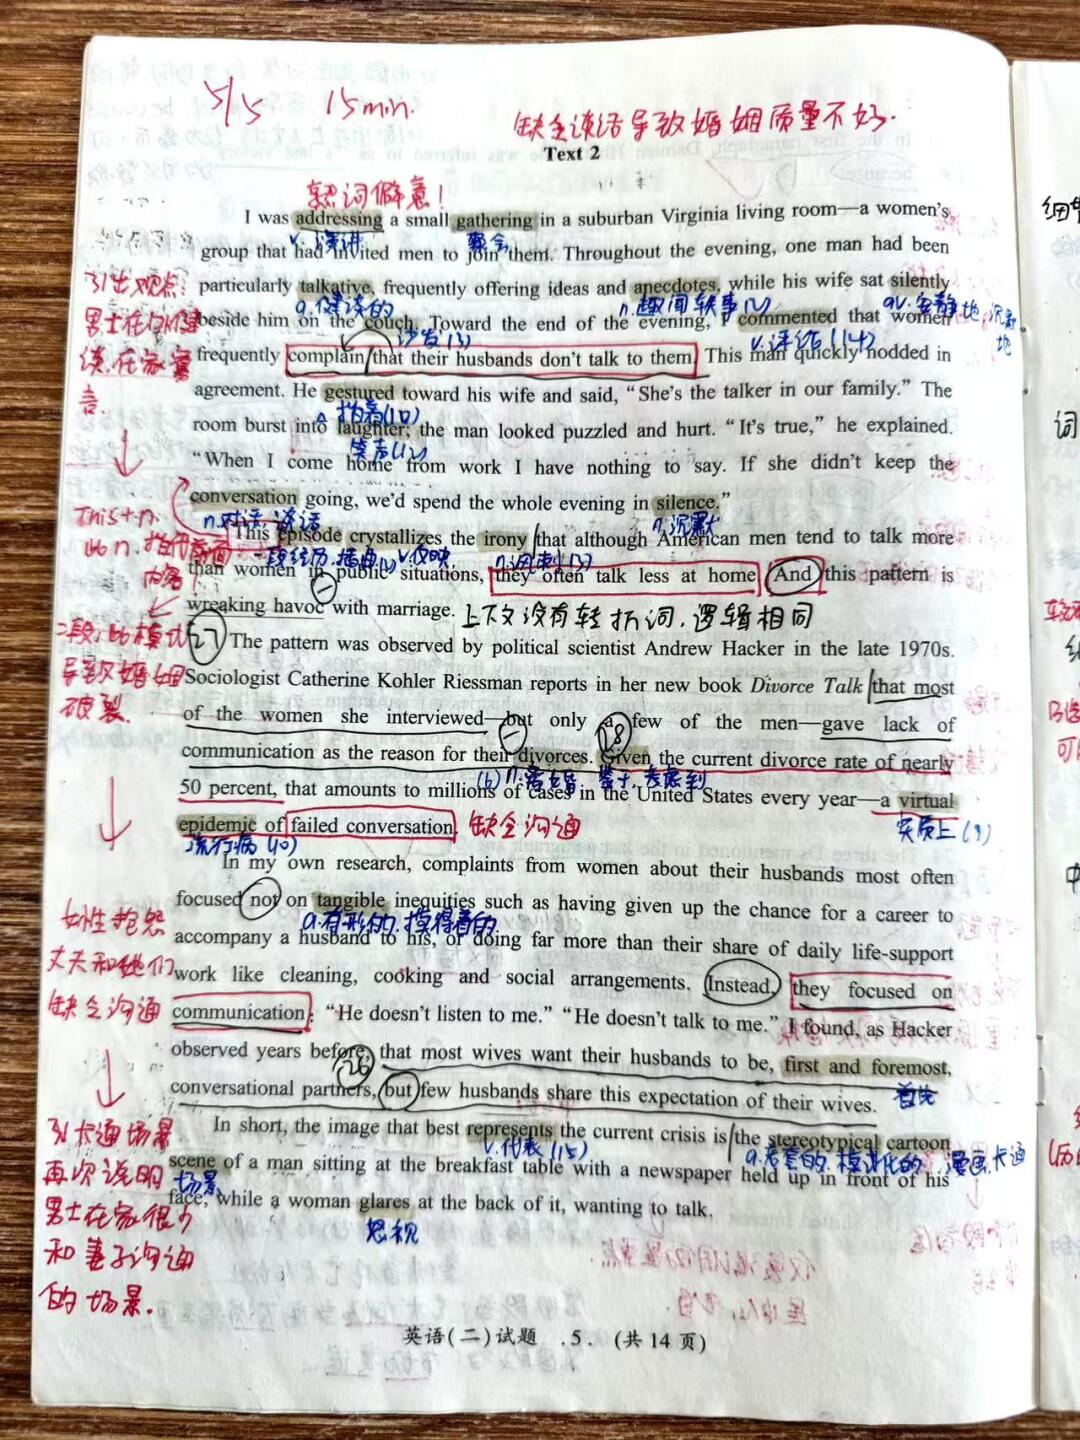 5/5 15min.
缺乏谈话导致婚姻质量不好.
Text 2
熟词僻意!
I was addressing a small gathering in a suburban Virginia living room—a women's
v.演讲 聚会
group that had invited men to join them. Throughout the evening, one man had been
particularly talkative, frequently offering ideas and anecdotes, while his wife sat silently
a.健谈的 n.趣闻轶事(2) av.安静地 沉默地
beside him on the couch. Toward the end of the evening, I commented that women
沙发(3) v.评论(14)
frequently complain that their husbands don't talk to them. This man quickly nodded in
agreement. He gestured toward his wife and said, “She's the talker in our family.” The
指着(10)
room burst into laughter; the man looked puzzled and hurt. “It's true,” he explained.
笑声(12)
“When I come home from work I have nothing to say. If she didn't keep the
conversation going, we'd spend the whole evening in silence.”
n.对话,谈话 n.沉默
This episode crystallizes the irony that although American men tend to talk more
一段经历,插曲 v.反映 n.讽刺(3)
than women in public situations, they often talk less at home. And this pattern is
wreaking havoc with marriage. 上下文没有转折词,逻辑相同
27
The pattern was observed by political scientist Andrew Hacker in the late 1970s.
Sociologist Catherine Kohler Riessman reports in her new book Divorce Talk that most
of the women she interviewed—but only a few of the men—gave lack of
28
communication as the reason for their divorces. Given the current divorce rate of nearly
(6)n.离婚 鉴于,考虑到
50 percent, that amounts to millions of cases in the United States every year—a virtual
实质上(9)
epidemic of failed conversation. 缺乏沟通
流行病(10)
In my own research, complaints from women about their husbands most often
focused not on tangible inequities such as having given up the chance for a career to
a.有形的.摸得着的
accompany a husband to his, or doing far more than their share of daily life-support
work like cleaning, cooking and social arrangements. Instead, they focused on
communication: “He doesn't listen to me.” “He doesn't talk to me.” I found, as Hacker
observed years before, that most wives want their husbands to be, first and foremost,
26
首先
conversational partners, but few husbands share this expectation of their wives.
In short, the image that best represents the current crisis is the stereotypical cartoon
v.代表(15) a.老套的.模式化的 漫画,卡通
scene of a man sitting at the breakfast table with a newspaper held up in front of his
场景
face, while a woman glares at the back of it, wanting to talk.
怒视
引出观点:
男士在外健
谈,在家寡
言.
This+n.
the n.指代前面
内容!
二段:the模式
导致婚姻
破裂.
女性抱怨
丈夫和他们
缺乏沟通
引卡通场景
再次说明
男士在家很少
和妻子沟通
的场景.
英语(二)试题 .5. (共14页)